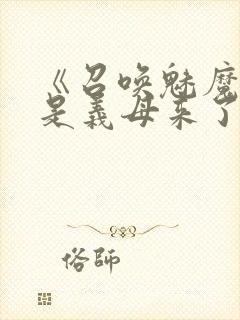 《召唤魅魔
是義母来了
俗師